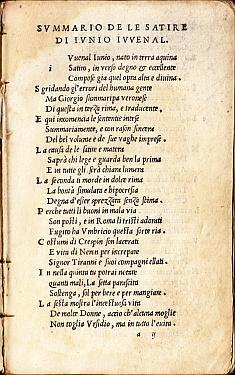 SVMMARIO DE LE SATIRE
DI IVNIO IVVENAL.
Vuenal Iunio, nato in terra aquina
i Satiro, in verso degno & eccellente
Compose gia quel opra alta e diuina.
S gridando gl'errori del humana gente
Ma Giorgio summaripa veronese
Di questa in terza rima, e traducente,
E qui incomencia le sententie intese
Summariamente, e con rason sincera
Del bel volume e de sue vaghe imprese.
L a causa de le satire e matera
Saprà chi lege e guarda ben la prima
E in tutte gli serà chiara lumera
L a seconda ti morde in dolce rima
La bontà simulata e hipocresia
Degna d'esser sprezzata senza stima.
P erche tutti li buoni in mala via
Son posti, e in Roma li tristi adorati
Fugito ha Vmbricio questa sorte ria.
C ostumi di Crespin son lacerati
E vita di Neron per increpare
Signor Tiranni e suoi compagni ellati.
I n nella quinta tu potrai notare
quanti mali, La setta parasita
Sostenga, sol per bere e per mangiare.
L a sesta mostra l'incestuosa vita
De molte Donne, acciò ch'alcuna moglie
Non toglia Vrsidio, ma in tutto l'euita.
a ij